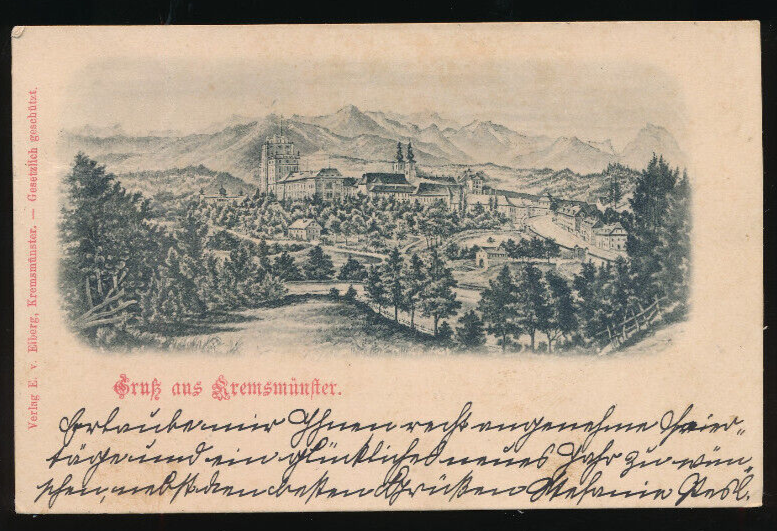 Verlag E. v. Eiberg, Kremsmünster. — Gesetzlich geschützt.
Gruß aus Kremsmünster.
Erlaube mir Ihnen recht angenehme Feier-
täge und ein glückliches neues Jahr zu wün-
schen, nebst den besten Grüßen Stefanie Resl.